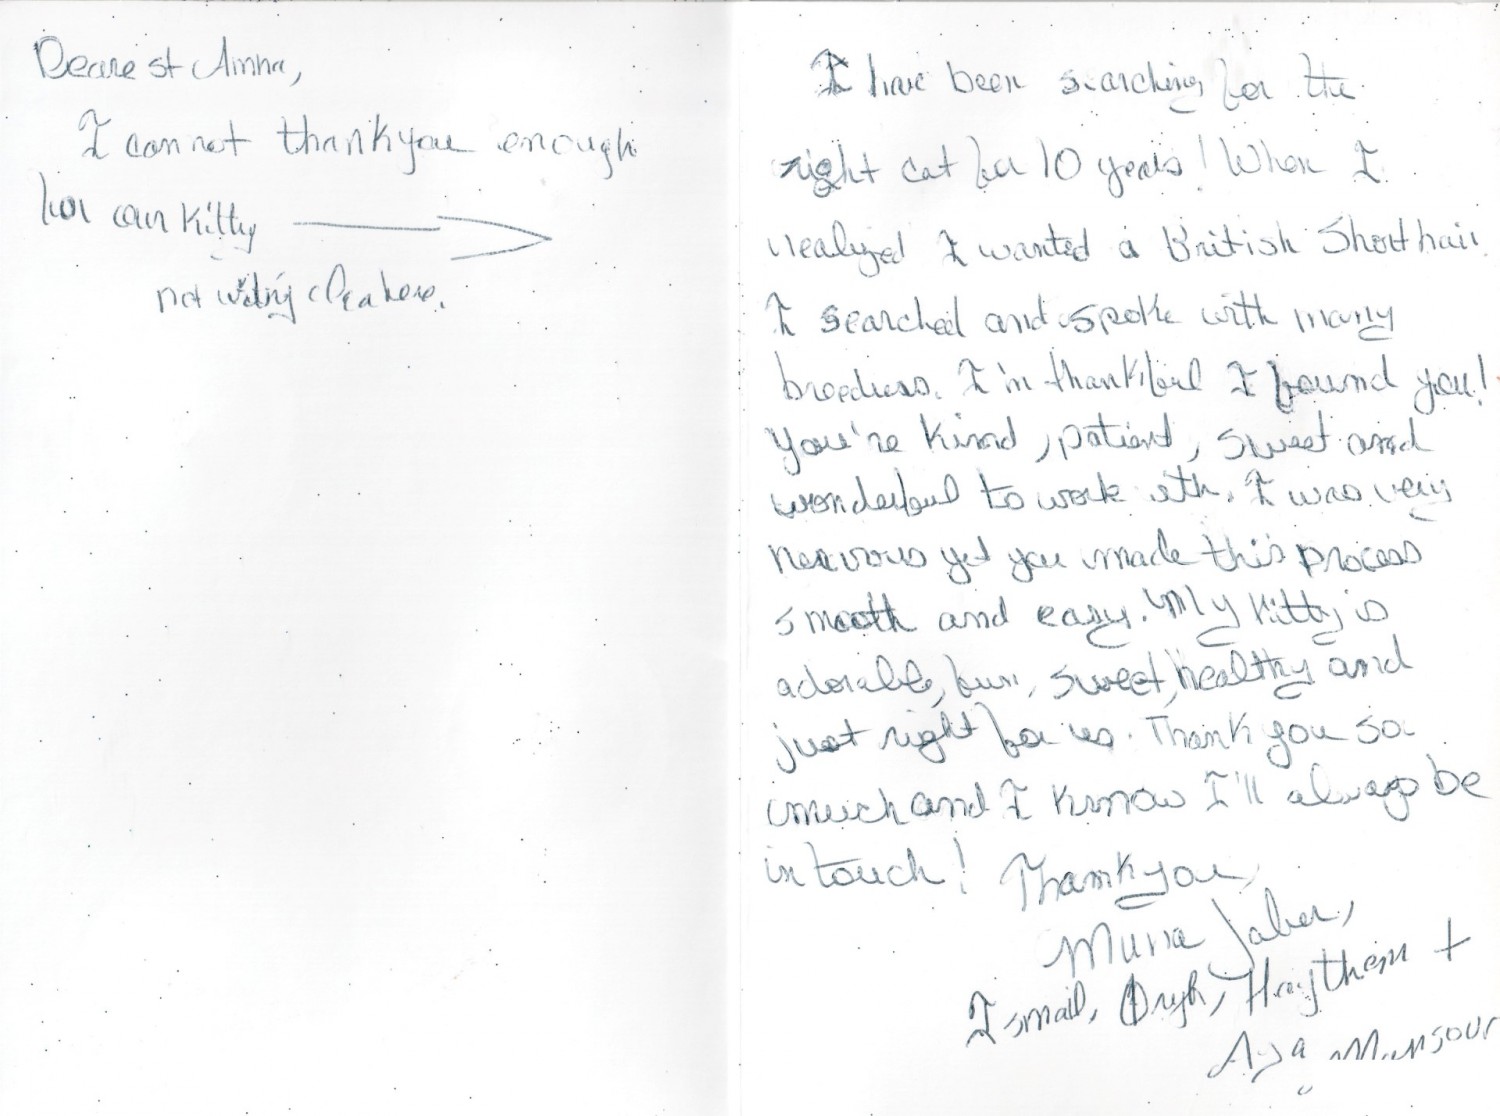 Dearest Anna,
I cannot thank you enough
for our kitty
not writing clea here.
I have been searching for the
right cat for 10 years! When I
realized I wanted a British Shorthair
I searched and spoke with many
breeders. I'm thankful I found you!
You're kind, patient, sweet and
wonderful to work with. I was very
nervous yet you made this process
smooth and easy. My kitty is
adorable, fun, sweet, healthy and
just right for us. Thank you so
much and I know I'll always be
in touch! Thank you,
Muna Jaber,
Ismail, Haythem +
Aya Mansour